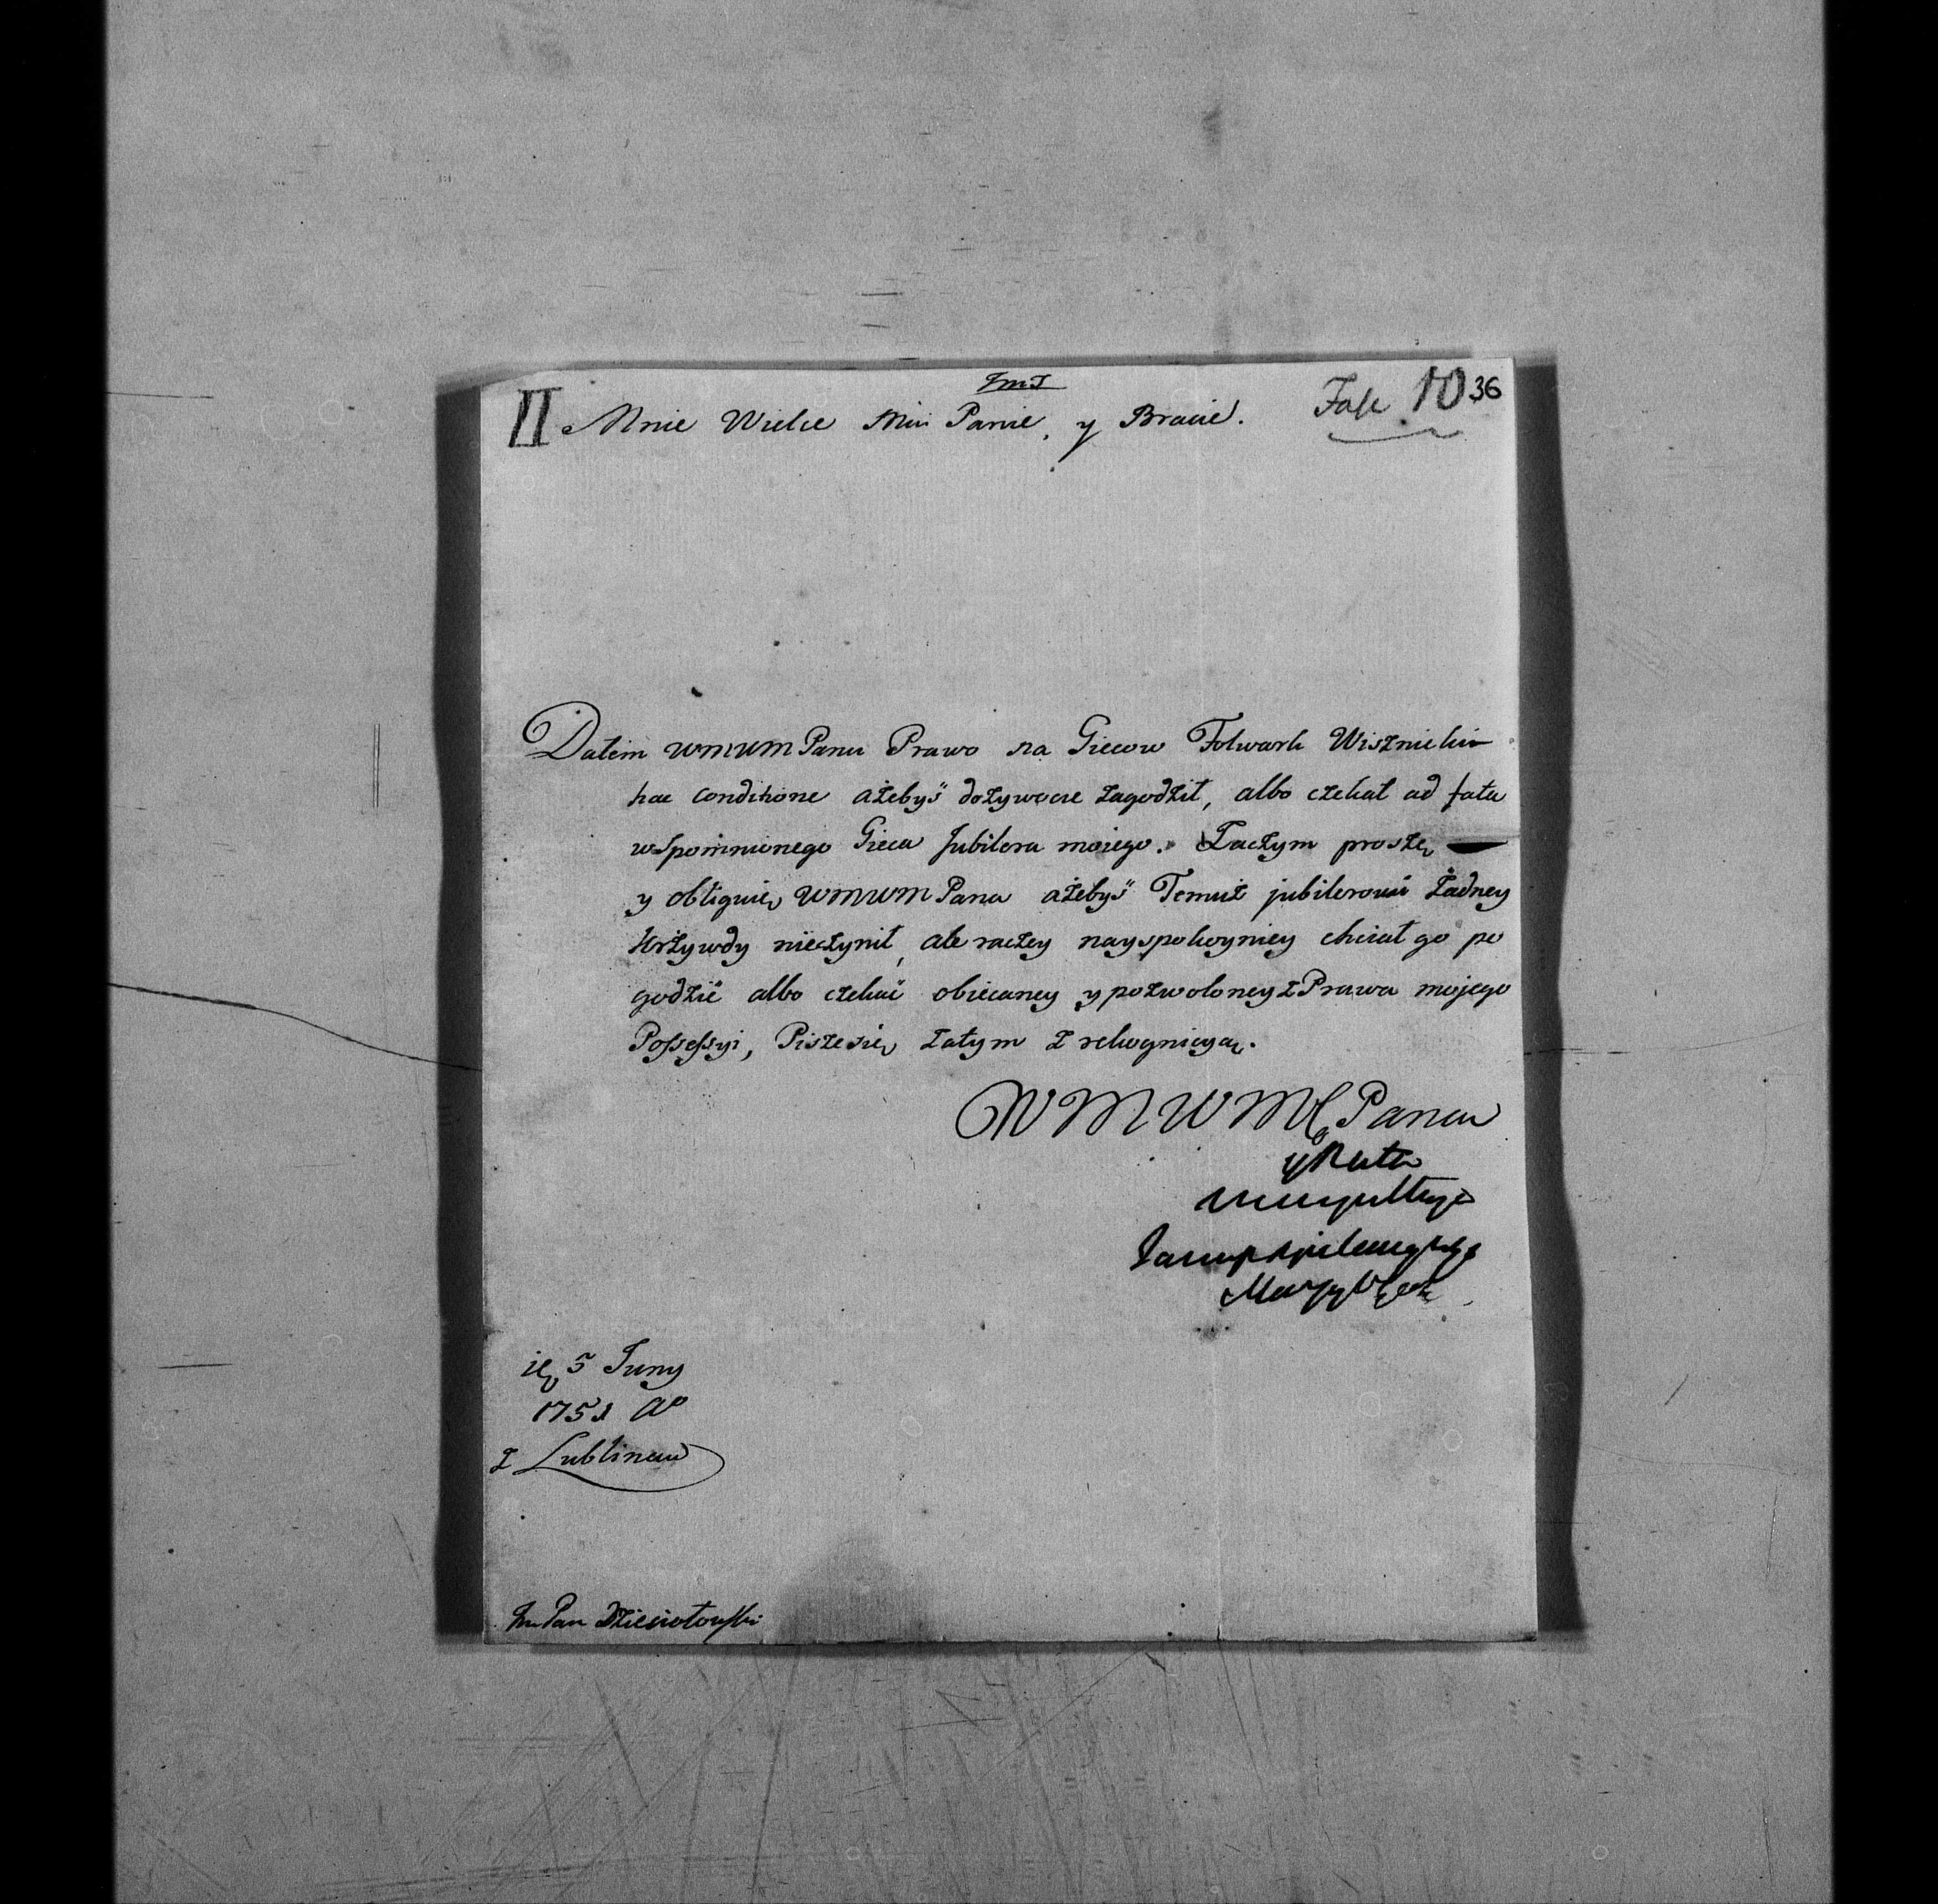 JmJ
II Mnie Wielce Mći Panie, y Bracie. Fasc 10 36
Dałem WMWM Panu Prawo na Giecow Folwark Wisznicki
hac conditione ażebyś dożywocie zagodził, albo czekał ad fata
wspomnionego Gieca Jubilera moiego. Zaczym proszę
y obliguię WMWM Pana ażebyś Temuż jubilerowi żadney
krzywdy nieczynił, ale raczey nayspokoyniey chciał go po
godzić albo czekać obiecaney y pozwoloney z Prawa mojego
Possessyi, Piszesię zatym z rekogniсyą.
WMWM Pana
y Brata
ię 5 Juny
1751 Ao
z Lublina
Im Pan Dzieciołowski